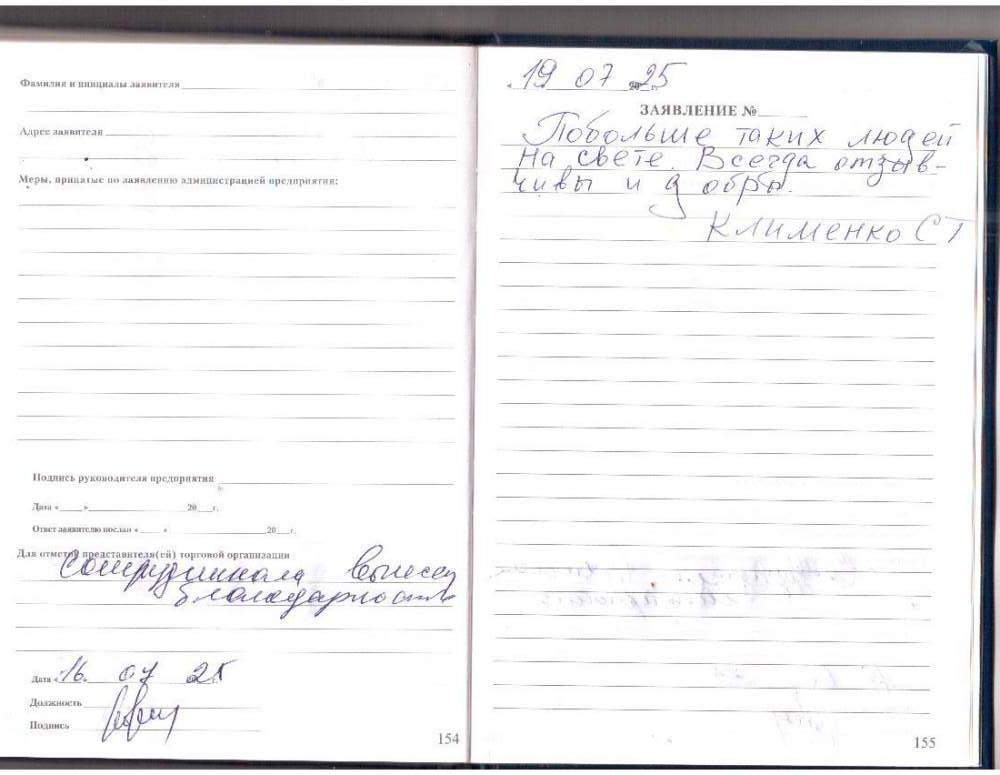 Фамилия и инициалы заявителя
Адрес заявителя
Меры, принятые по заявлению администрацией предприятия:
Подпись руководителя предприятия
Дата « » 20 г.
Ответ заявителю послан « » 20 г.
Для отметок представителя(ей) торговой организации
Сотрудникам вынесена
благодарность
Дата «16» 07 25
Должность
Подпись
154
19 07 2025
ЗАЯВЛЕНИЕ №
Побольше таких людей
на свете. Всегда отзыв-
чивы и добры.
Клименко СТ
155